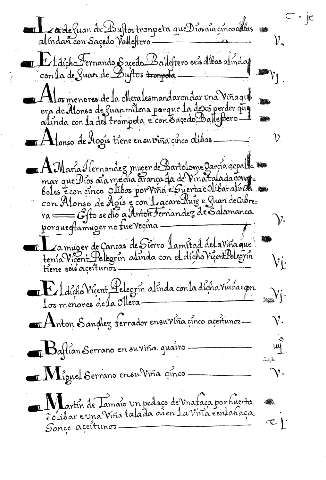 La de Juan de Bustos trompeta que Dios aia cinco olibos
alindan con Saçedo Vallestero
v.
El dicho Fernando Saçedo Ballestero seis olibos alinda
con la de Juan de Bustos trompeta
vj
A los menores de la Ollera les mandaron dar una Viña q
era de Alonso de Juan molina porque la dexo perder que
alinda con la del trompeta e con Saçedo Ballestero
Alonso de Agis tiene en su viña cinco olibos
v
A Maria Hernandez muger de Bartolome Garçia
mar que Dios aia media arançada de Viña talada con
con cinco olibos por viña e Huerta olibar alinda
con Alonso de Agis e con Laçaro Ruiz e Juan de
Esto se dio a Anton Fernandez de Salamanca
porque la muger no fue vecina
v.
La muger de Cancas de Sierro la mitad de la viña que
tenia Viçent Pelegrin alinda con el dicho Viçent Pelegrin
tiene seis açeitunos
vj.
El dicho Viçent Pelegrin alinda con la dicha viuda y con
los menores de la Ollera
vj.
Anton Sanchez ferrador en su viña cinco açeitunos
v.
Bastian Serrano en su viña quatro
iiij
Miguel Serrano en su Viña cinco
v.
Martin de Tamaio un pedaço de por huerta
e olibar e una Viña talada
Gonçe açeitunos